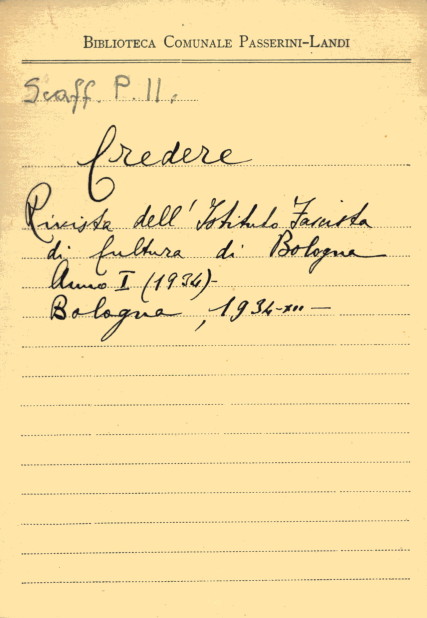 BIBLIOTECA COMUNALE PASSERINI-LANDI
Scaff. P. 11.
Credere
Rivista dell'Istituto Fascista
di Cultura di Bologna
Anno I (1934)-
Bologna, 1934-XII-